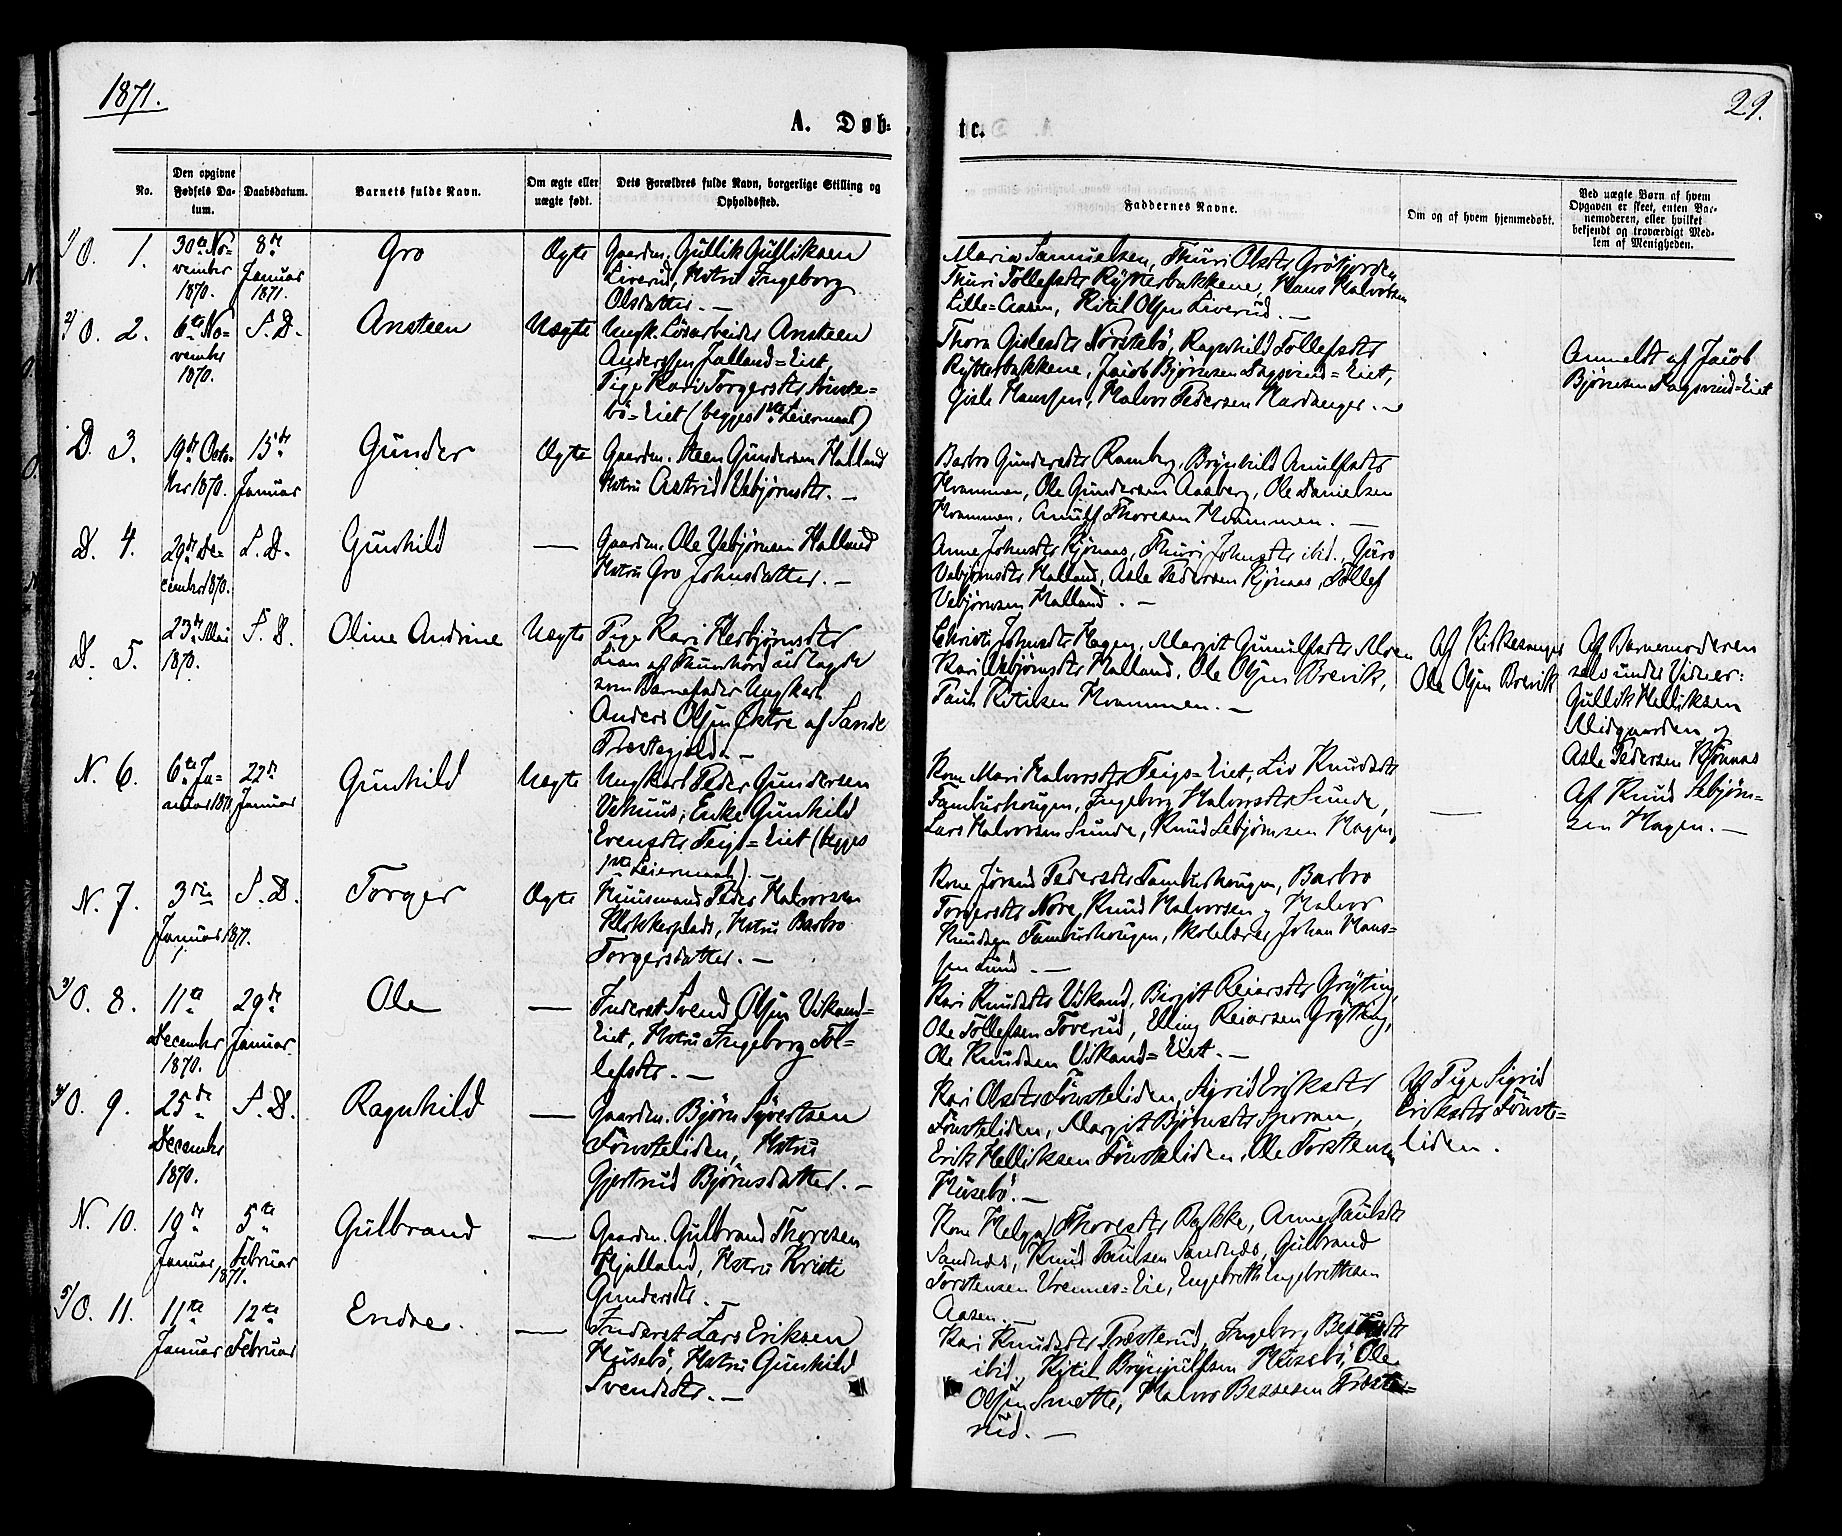 1871.
29.
A. Døb-
te.
No.
Den opgivne
Fødsels Da-
tum.
Daabsdatum.
Barnets fulde Navn.
Om ægte eller
uægte født.
Dets Forældres fulde Navn, borgerlige Stilling og
Opholdssted.
Faddernes Navne.
Om og af hvem hjemmedøbt.
Ved uægte Børn af hvem
Opgaven er skeet, enten Bar-
nemoderen, eller hvilket
bekjendt og troværdigt Med-
lem af Menigheden.
1) O. 1.
30te No-
vember
1870.
8de
Januar
1871.
Gro
Ægte
Gaardm. Gullik Gulliksen
Liverud, Hstru Ingeborg
Olsdatter. —
Maria Samuelsen, Thuri Olsdtr
Thuri Tollefsdtr Rytterbakkene, Hans Halvorsen
Lille-Aasen, Kittil Olsen Liverud. —
2) O. 2.
6te No-
vember
1870.
S. D.
Ansteen
Uægte
Ungk. Løsarbeider Ansteen
Anderssen Jalland=Eiet,
Pige Kari Torgersdtr
bö=Eiet (begges 1ste Leiermaal)
Thora Gislesdtr Norstebö, Ragnhild Tollefsdtr
Rytterbakkene, Jacob Björnsen Dagsvind=Eiet,
Gisle Hanssen, Halvor Pedersen Hardanger. —
Anmeldt af Jacob
Björnsen Dagsvind=Eiet
D. 3.
19de Octo-
ber 1870.
15de
Januar
Gunder
Ægte
Gaardm. Steen Gundersen Halland
Hstru Astrid Vebjörnsdtr. —
Barbro Gundersdtr Ramberg, Brynhild Arnulfsdtr
Hvammen, Ole Gundersen Aasberg, Ole Danielsen
Hvammen, Arnulf Thoresen Hvammen. —
D. 4.
29de De-
cember 1870.
S. D.
Gunhild
—
Gaardm. Ole Vebjörnsen Halland
Hstru Gro Johnsdatter. —
Anne Johnsdtr Kjönaas, Thuri Johnsdtr ibid., Guro
Vebjörnsdtr Halland, Asle Pedersen Kjönaas, Tollef
Vebjörnsen Halland. —
D. 5.
23de Mai
1870.
S. D.
Oline Andrine
Uægte
Pige Kari Herbjörnsdtr
Lian af udlagde
som Barnefader Ungkarl
Anders Olsen Östre af Sande
Præstegjeld. —
Christi Johnsdtr Hagen, Margit Gunulfsdtr Moen
Kari Vebjörnsdtr Halland, Ole Olsen Brevik,
Paul Kittilsen Hvammen. —
Af Kirkesanger
Ole Olsen Brevik
Af Barnemoderen
selv under Vidner:
Gullik Helliksen
Midgaarden og
Asle Pedersen Kjönaas
N. 6.
6te Ja-
nuar 1871.
22de
Januar
Gunhild
Uægte
Ungkarl Peder Gundersen
Vehuus, Enke Gunhild
Evensdtr Teigs=Eiet (begges
1ste Leiermaal). —
Kone Mari Halvorsdtr Teigs=Eiet, Liv Knudsdtr
Tamburhougen, Ingeborg Halvorsdtr Sunde,
Lars Halvorsen Sunde, Knud Sebjörnsen Hagen,
—
Af Knud Sebjörn-
sen Hagen. —
N. 7.
3die
Januar 1871.
S. D.
Torger
Ægte
Huusmand Peder Halvorsen
Klokkerplads, Hstru Barbro
Torgersdatter. —
Kone Jörand Pedersdtr Tamburhougen, Barbro
Torgersdtr Nore, Knud Halvorsen, Halvor
Knudsen Tamburhougen, Skolelærer Johan Hans-
sen Lund. —
3) O. 8.
11te
December
1870.
29de
Januar.
Ole
—
Inderst Svend Olsen Vikand=
Eiet, Hstru Ingeborg Tol-
lefsdtr. —
Kari Knudsdtr Vikand, Birgit Reiarsdtr Gryting,
Ole Tollefsen Toverud, Elling Reiarsen Gryting,
Ole Knudsen Vikand=Eiet. —
4) O. 9.
25de
December
1870.
S. D.
Ragnhild
—
Gaardm. Björn Syvertsen
Fönsteliden, Hstru
Gjertrud Björnsdatter. —
Kari Olsdtr Fönsteliden, Sigrid Eriksdtr
Fönsteliden, Margit Björnsdtr Sporan,
Erik Helliksen Fönsteliden, Ole Torstensen
Husebö. —
Af Pige Sigrid
Eriksdtr Fönste=
liden.
N. 10.
19de
Januar
1871.
5te
Februar
Gulbrand
—
Gaardm. Gulbrand Thoresen
Skjalland, Hstru Kristi
Gundersdtr. —
Kone Helga Thoresdtr Bakke, Anne Paulsdtr
Sandnes, Knud Paulsen Sandnes, Gulbrand
Torstensen Vrennes=Eie, Engebreth Engebrethsen
Aasen. —
5) O. 11.
11te
Januar
12te
Februar
Endre.
—
Inderst Lars Eriksen
Husebö, Hstru Gunhild
Svendsdtr. —
Kari Knudsdtr Præsterud, Ingeborg
ibid., Kittil Brynjulfsen Husebö, Ole
Olsen Smette, Halvor Bessesen Præste=
rud. —